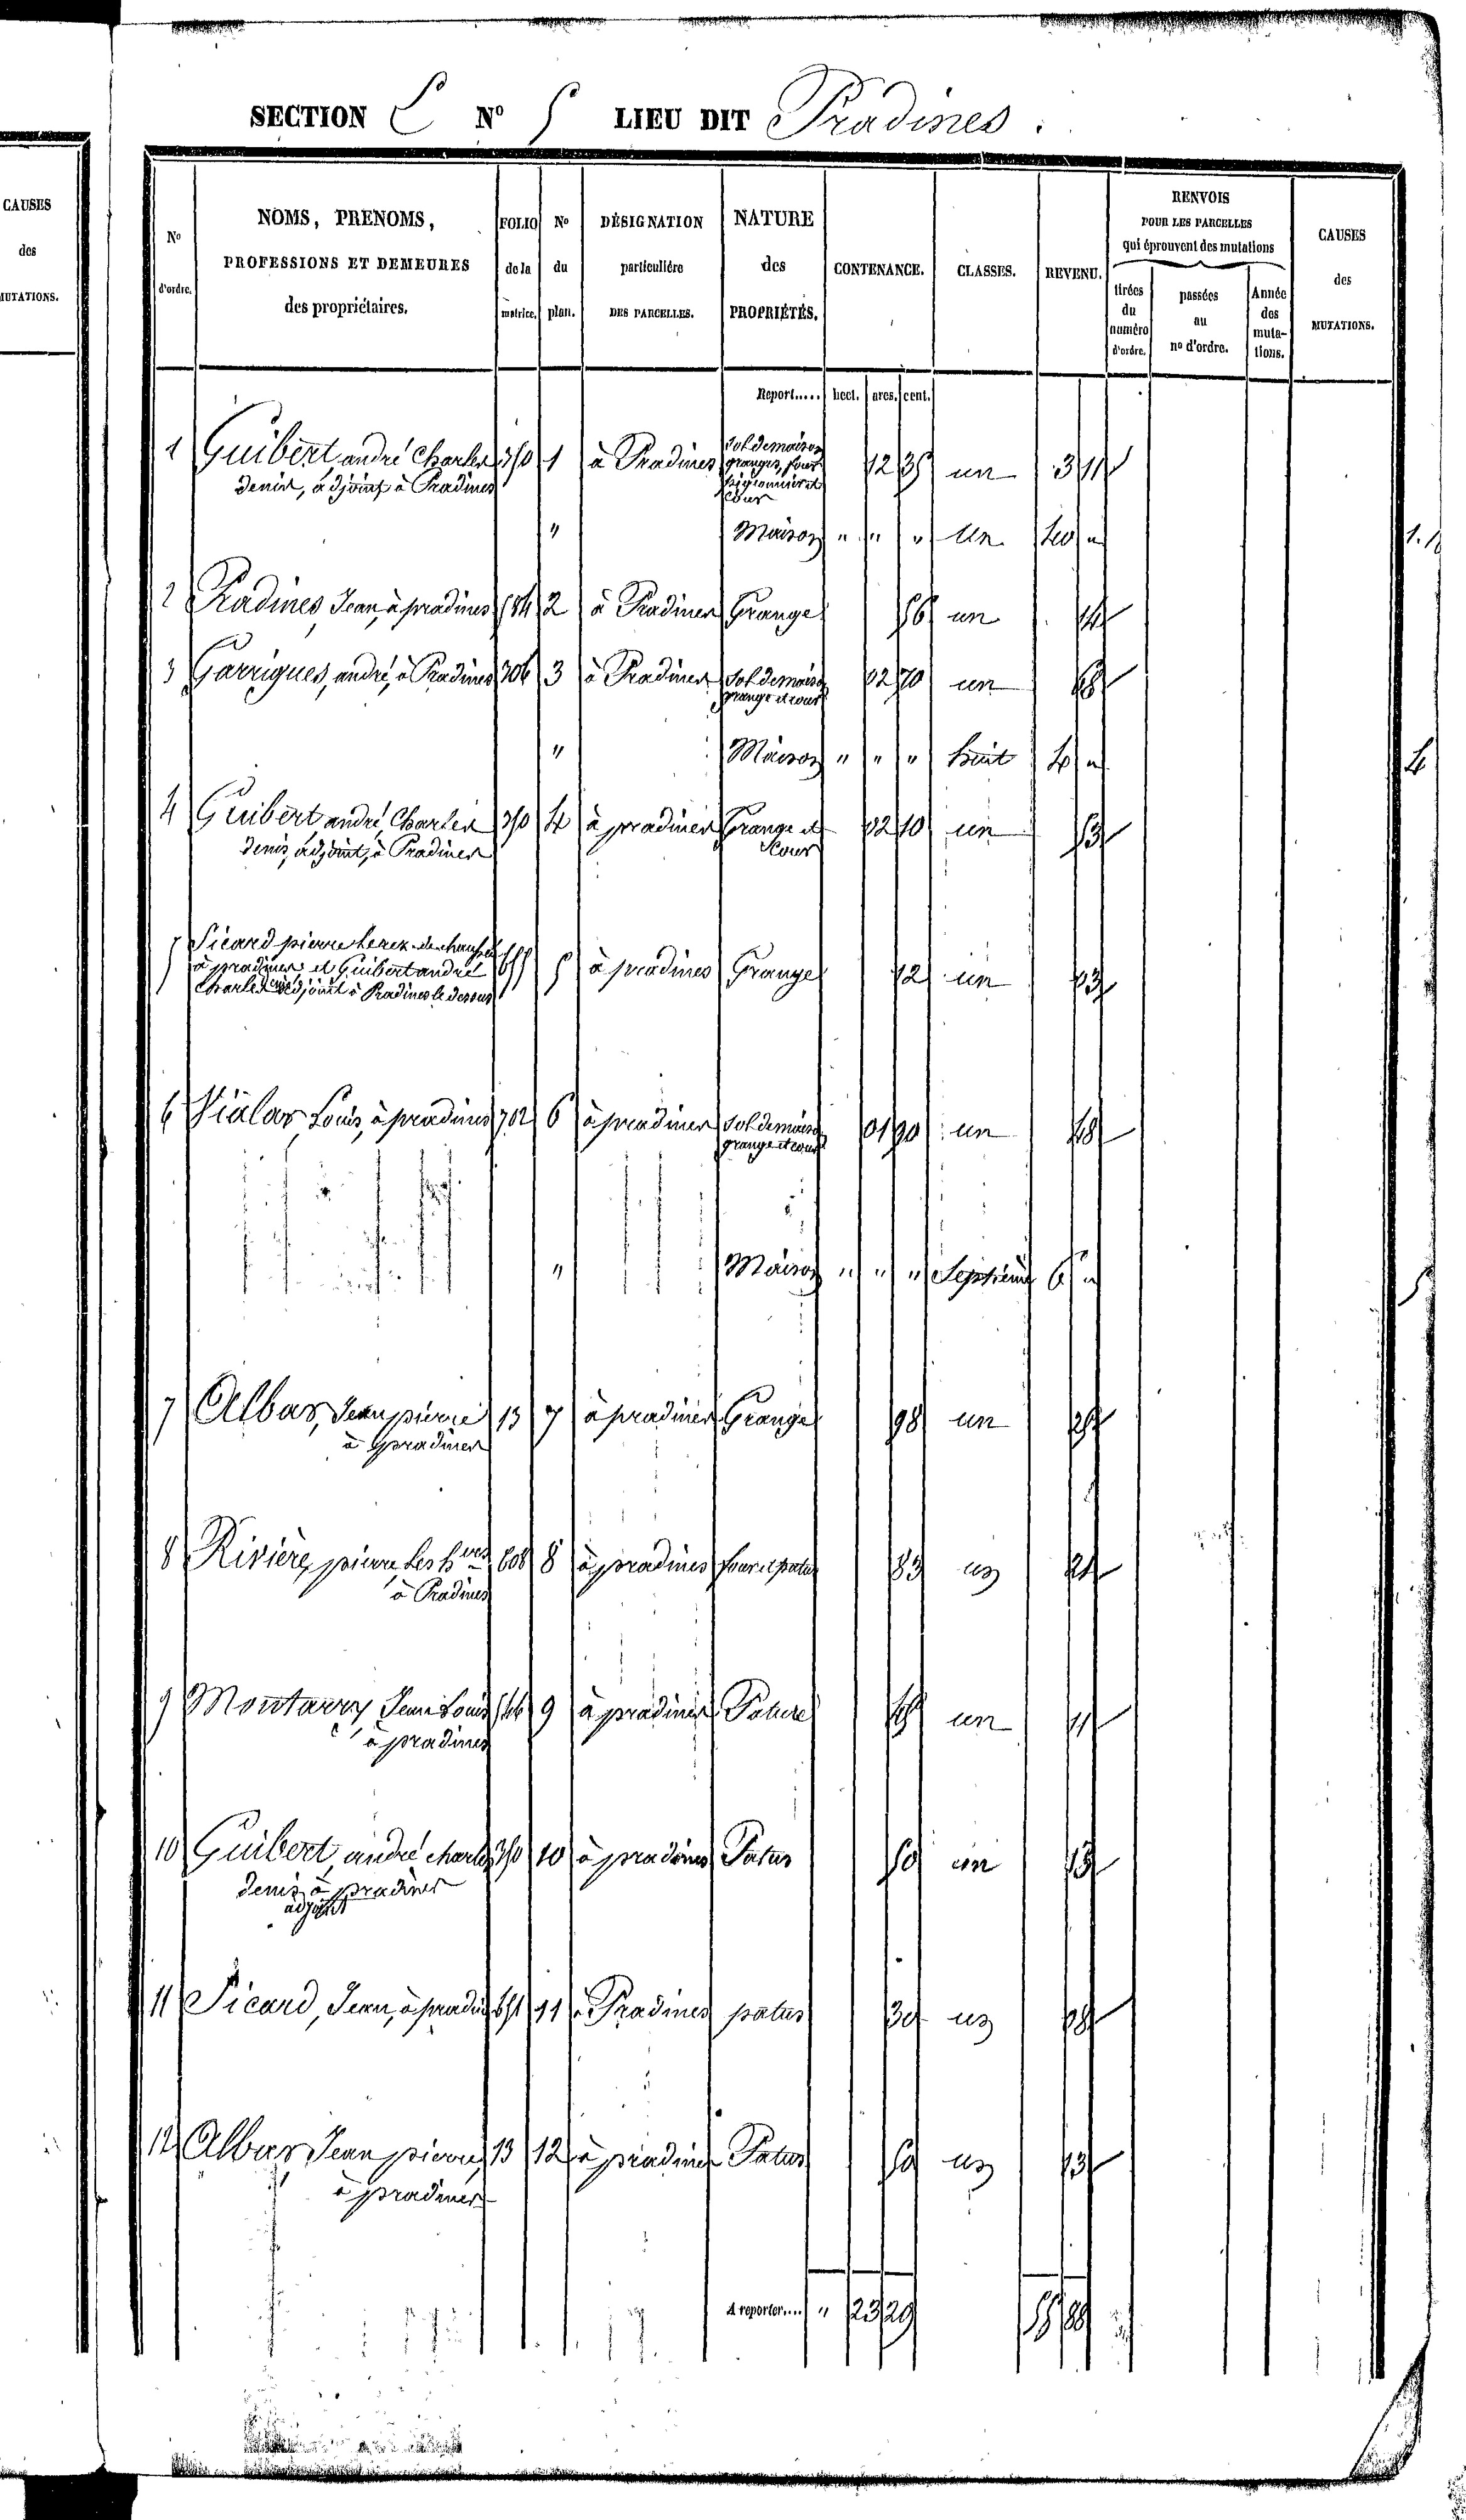 SECTION C N° 5 LIEU DIT Pradines.
CAUSES
des
MUTATIONS.
N°
d'ordre.
NOMS, PRENOMS,
PROFESSIONS ET DEMEURES
des propriétaires.
FOLIO
de la
matrice.
N°
du
plan.
DÉSIGNATION
particulière
DES PARCELLES.
NATURE
des
PROPRIÉTÉS.
CONTENANCE.
CLASSES.
REVENU.
RENVOIS
POUR LES PARCELLES
qui éprouvent des mutations
tirées
du
numéro
d'ordre.
passées
au
n° d'ordre.
Année
des
muta-
tions.
CAUSES
des
MUTATIONS.
Report..... hect. ares. cent.
1 Guibert andré Charles 350 1 à Pradines sol de maison 12 35 un 3 11
granges, four
pigeonnier et
cour
denis, adjoint à Pradines
" Maison " " " un 40 "
2 Pradines Jean, à pradines 584 2 à Pradines Grange 56 un 14
3 Garrigues, andré, à Pradines 306 3 à Pradines Sol de maison 02 70 un 68
grange et cour
" Maison " " " huit 4 "
4 Guibert andré Charles 350 4 à pradines Grange et 02 10 un 53
Cour
denis, adjoint, à Pradines
5 Sicard pierre
à pradines et Guibert andré 5 à pradines Grange 12 un 03
Charles denis adjoint à Pradines le dessus
6 Vialar Louis, à pradines 702 6 à pradines Sol de maison 01 90 un 48
grange et cour
" Maison " " " Septieme 6 "
7 Albar, Jean pierre 13 7 à pradines Grange 98 un
à pradines
8 Rivière, pierre les h. 608 8 à pradines four et patus 83 un 21
à Pradines
9 Jean Louis 9 à pradines Pature un 11
à pradines
10 Guibert andré charles 350 10 à pradines Patus 50 un 13
denis à pradines
adjoint
11 Sicard, Jean, à pradines 651 11 à Pradines patus 30 un 08
12 Albar Jean pierre, 13 12 à pradines Patus 50 un 13
à pradines
A reporter.... " 23 29 55 88